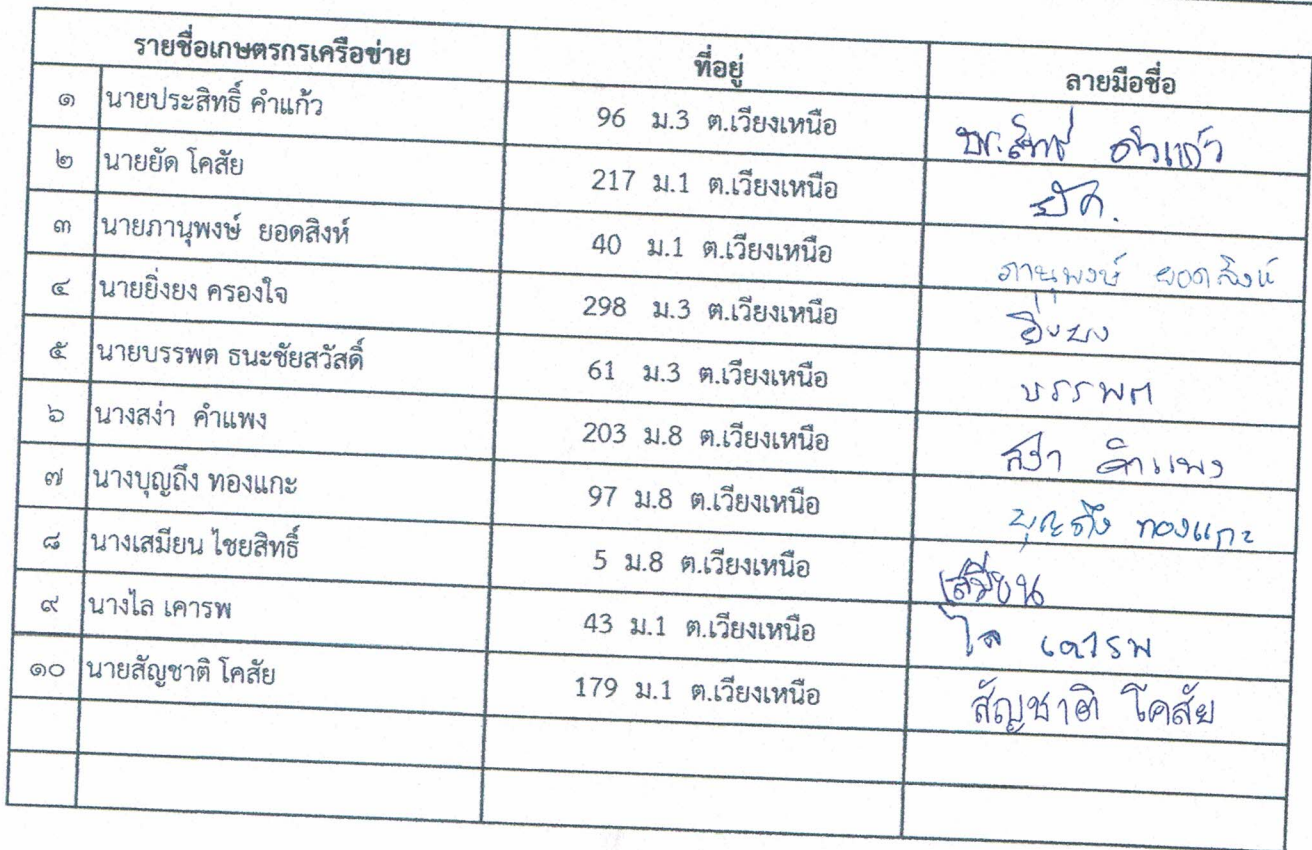 รายชื่อเกษตรกรเครือข่าย ที่อยู่ ลายมือชื่อ
๑ นายประสิทธิ์ คำแก้ว 96 ม.3 ต.เวียงเหนือ คำแก้ว
๒ นายยัด โคสัย 217 ม.1 ต.เวียงเหนือ ยัด.
๓ นายภานุพงษ์ ยอดสิงห์ 40 ม.1 ต.เวียงเหนือ ภานุพงษ์ ยอดสิงห์
๔ นายยิ่งยง ครองใจ 298 ม.3 ต.เวียงเหนือ ยิ่งยง
๕ นายบรรพต ธนะชัยสวัสดิ์ 61 ม.3 ต.เวียงเหนือ บรรพต
๖ นางสง่า คำแพง 203 ม.8 ต.เวียงเหนือ สง่า คำแพง
๗ นางบุญถึง ทองแกะ 97 ม.8 ต.เวียงเหนือ บุญถึง ทองแกะ
๘ นางเสมียน ไชยสิทธิ์ 5 ม.8 ต.เวียงเหนือ
๙ นางไล เคารพ 43 ม.1 ต.เวียงเหนือ ไล เคารพ
๑๐ นายสัญชาติ โคสัย 179 ม.1 ต.เวียงเหนือ สัญชาติ โคสัย